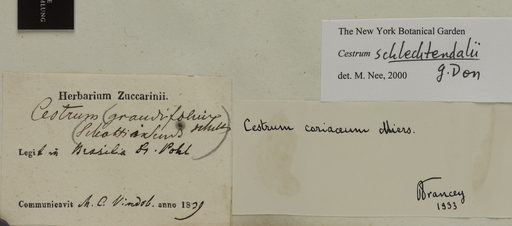 LUNG
The New York Botanical Garden
Cestrum schlechtendalii
G. Don
det. M. Nee, 2000
Herbarium Zuccarinii.
Cestrum (grandifolium
Schottianum
Legit in Brasilia Dr. Pohl
Communicavit M. C. Vindob. anno 1839
Cestrum coriaceum Miers.
Francey
1933